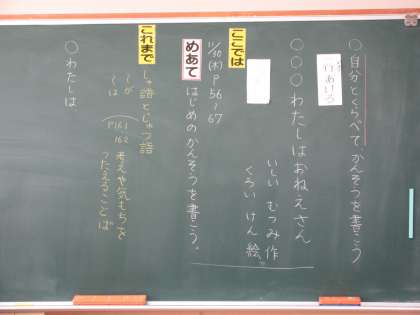 ○自分とくらべてかんそうを書こう
○○○わたしはおねえさん
いしい むつみ 作
くろい けん 絵
ここでは
11/30(水)P56~67
めあて
はじめのかんそうを書こう。
これまで
しゅ語とじゅつ語
~が
~は
P161
162
考えや気もちを
つたえることば
○わたしは、